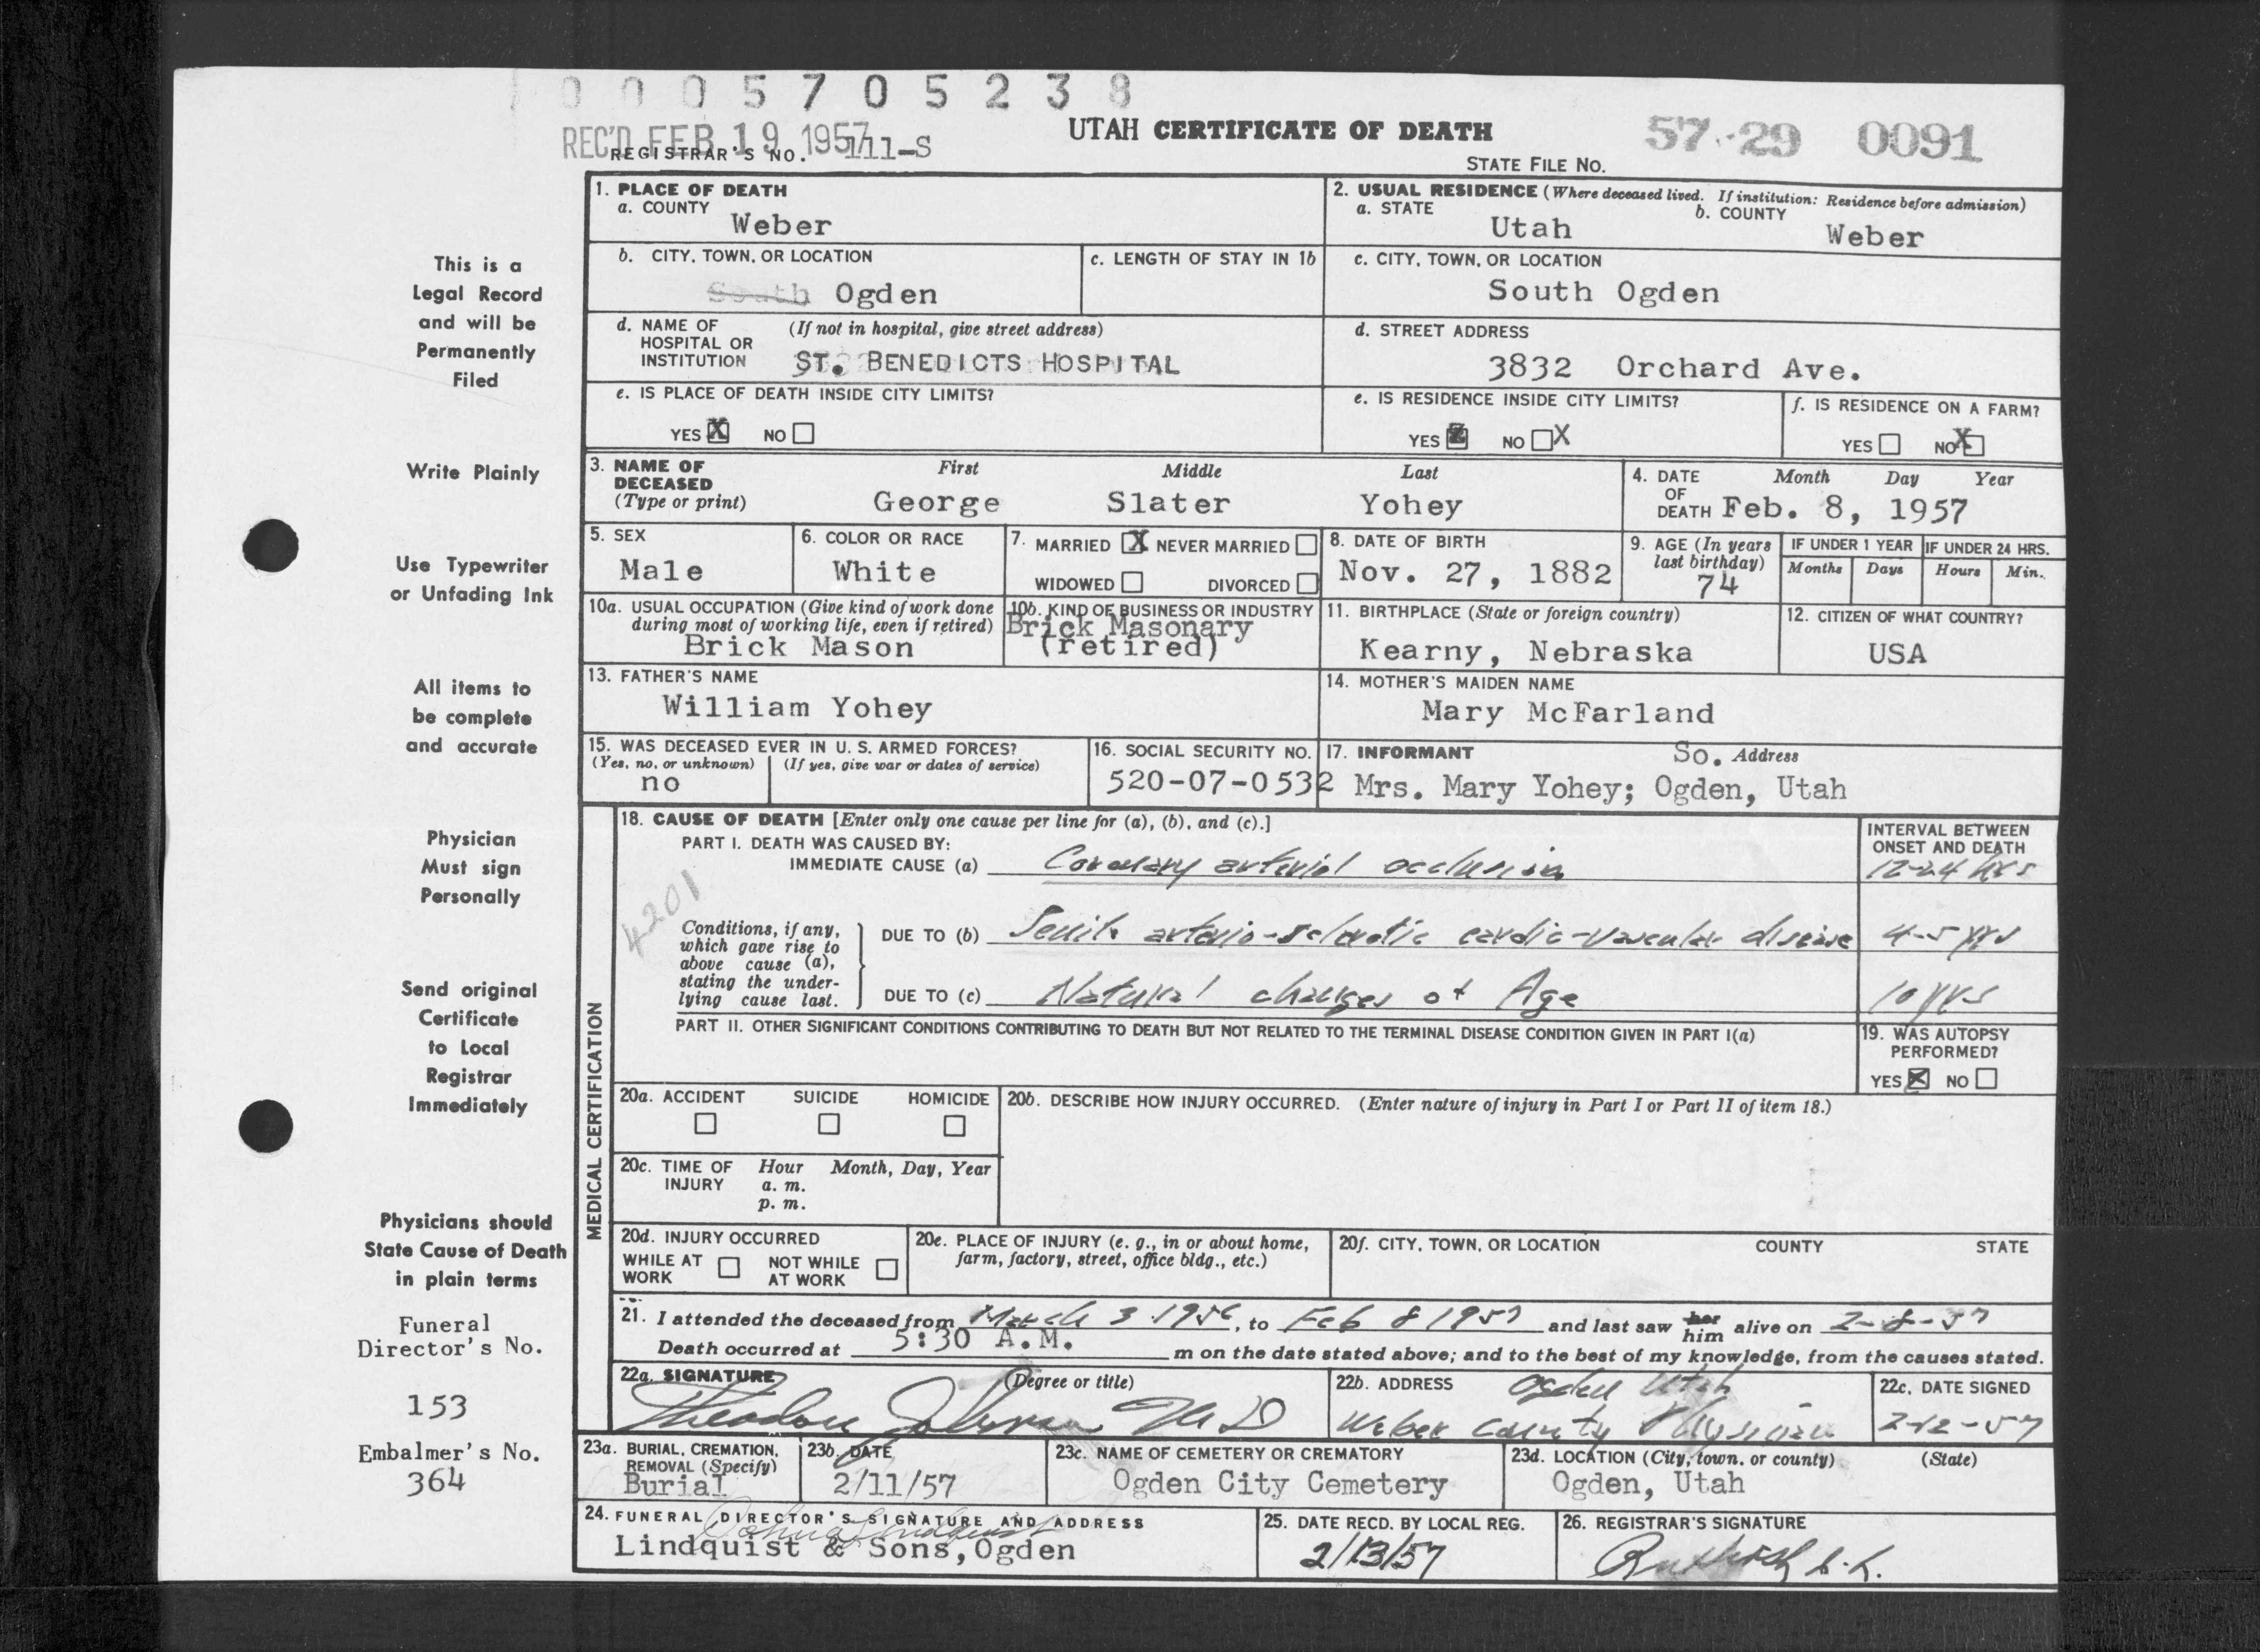 0005705238
REC'D FEB 19 1957
REGISTRAR'S NO. 111-S
UTAH CERTIFICATE OF DEATH
57-29 0091
STATE FILE NO.
This is a
Legal Record
and will be
Permanently
Filed
Write Plainly
Use Typewriter
or Unfading Ink
All items to
be complete
and accurate
Physician
Must sign
Personally
Send original
Certificate
to Local
Registrar
Immediately
Physicians should
State Cause of Death
in plain terms
Funeral
Director's No.
153
Embalmer's No.
364
1. PLACE OF DEATH
a. COUNTY
Weber
2. USUAL RESIDENCE (Where deceased lived. If institution: Residence before admission)
a. STATE
Utah
b. COUNTY
Weber
b. CITY, TOWN, OR LOCATION
South Ogden
c. LENGTH OF STAY IN 1b
c. CITY, TOWN, OR LOCATION
South Ogden
d. NAME OF (If not in hospital, give street address)
HOSPITAL OR
INSTITUTION ST. BENEDICTS HOSPITAL
d. STREET ADDRESS
3832 Orchard Ave.
e. IS PLACE OF DEATH INSIDE CITY LIMITS?
YES X NO
e. IS RESIDENCE INSIDE CITY LIMITS?
YES NO X
f. IS RESIDENCE ON A FARM?
YES NO X
3. NAME OF
DECEASED
(Type or print)
First Middle Last
George Slater Yohey
4. DATE Month Day Year
OF
DEATH Feb. 8, 1957
5. SEX
Male
6. COLOR OR RACE
White
7. MARRIED X NEVER MARRIED
WIDOWED DIVORCED
8. DATE OF BIRTH
Nov. 27, 1882
9. AGE (In years
last birthday)
74
IF UNDER 1 YEAR
Months Days
IF UNDER 24 HRS.
Hours Min.
10a. USUAL OCCUPATION (Give kind of work done
during most of working life, even if retired)
Brick Mason
10b. KIND OF BUSINESS OR INDUSTRY
Brick Masonary
(retired)
11. BIRTHPLACE (State or foreign country)
Kearny, Nebraska
12. CITIZEN OF WHAT COUNTRY?
USA
13. FATHER'S NAME
William Yohey
14. MOTHER'S MAIDEN NAME
Mary McFarland
15. WAS DECEASED EVER IN U. S. ARMED FORCES?
(Yes, no, or unknown) (If yes, give war or dates of service)
no
16. SOCIAL SECURITY NO.
520-07-0532
17. INFORMANT So. Address
Mrs. Mary Yohey; Ogden, Utah
MEDICAL CERTIFICATION
18. CAUSE OF DEATH [Enter only one cause per line for (a), (b), and (c).]
INTERVAL BETWEEN
ONSET AND DEATH
PART I. DEATH WAS CAUSED BY:
IMMEDIATE CAUSE (a) Coronary arterial occlusion 12-24 hrs
4201
Conditions, if any,
which gave rise to
above cause (a),
stating the under-
lying cause last.
DUE TO (b) Senile arterio-sclerotic cardio-vascular disease 4-5 yrs
DUE TO (c) Natural changes of Age 10 yrs
PART II. OTHER SIGNIFICANT CONDITIONS CONTRIBUTING TO DEATH BUT NOT RELATED TO THE TERMINAL DISEASE CONDITION GIVEN IN PART I(a)
19. WAS AUTOPSY
PERFORMED?
YES X NO
20a. ACCIDENT SUICIDE HOMICIDE
20b. DESCRIBE HOW INJURY OCCURRED. (Enter nature of injury in Part I or Part II of item 18.)
20c. TIME OF Hour Month, Day, Year
INJURY a. m.
p. m.
20d. INJURY OCCURRED
WHILE AT NOT WHILE
WORK AT WORK
20e. PLACE OF INJURY (e. g., in or about home,
farm, factory, street, office bldg., etc.)
20f. CITY, TOWN, OR LOCATION COUNTY STATE
21. I attended the deceased from March 3 1956, to Feb 8 1957 and last saw her him alive on 2-8-57
Death occurred at 5:30 A.M. m on the date stated above; and to the best of my knowledge, from the causes stated.
22a. SIGNATURE (Degree or title)
Theodore MD
22b. ADDRESS Ogden Utah
Weber County Physician
22c. DATE SIGNED
2-12-57
23a. BURIAL, CREMATION,
REMOVAL (Specify)
Burial
23b. DATE
2/11/57
23c. NAME OF CEMETERY OR CREMATORY
Ogden City Cemetery
23d. LOCATION (City, town, or county) (State)
Ogden, Utah
24. FUNERAL DIRECTOR'S SIGNATURE AND ADDRESS
Lindquist & Sons, Ogden
25. DATE RECD. BY LOCAL REG.
2/13/57
26. REGISTRAR'S SIGNATURE